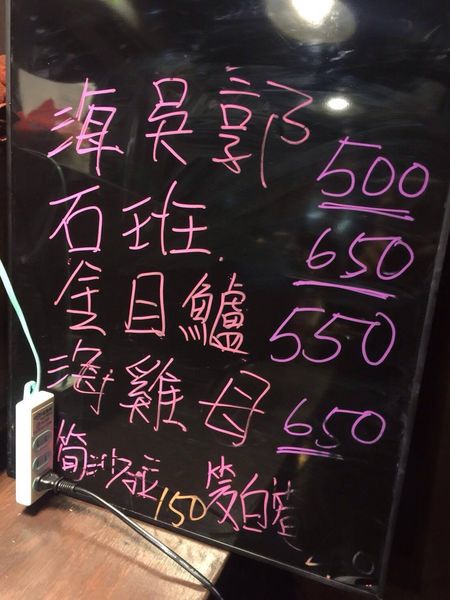 海吳郭 500
石班 650
金目鱸 550
海雞母 650
筍沙拉 150 筊白